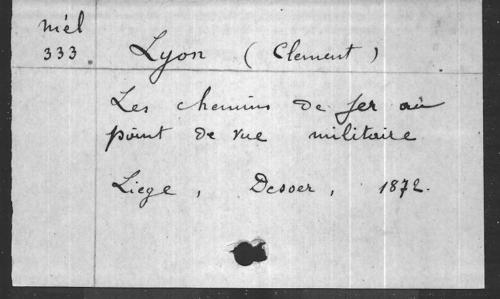 Mél
333
Lyon (Clement)
Les chemins de fer au
point de vue militaire
Liege, Desoer, 1872.